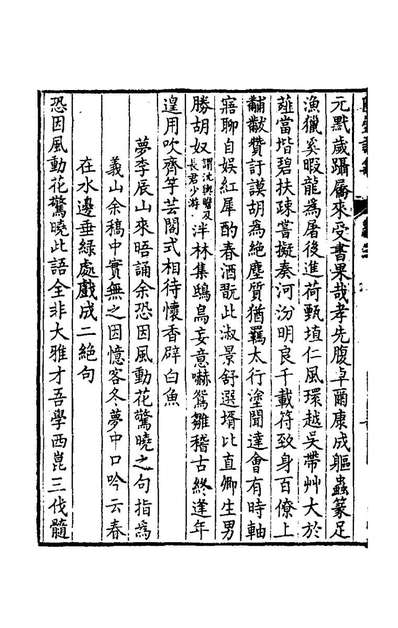 元默歲躡屩來受書果哉孝先腹卓爾康成軀蟲篆足
漁獵奚暇龍為屠後進荷甄埴仁風環越吳帶艸大於
薤當堦碧扶疎嘗擬奏河汾明良千載符致身百僚上
黼黻贊訏謨胡為絶塵質猶羈太行塗聞達會有時軸
寤聊自娱紅犀酌春酒翫此淑景舒選壻比直卿生男
勝胡奴謂沈興豎及長君少游泮林集鴟鳥妄意嚇鴛雛稽古終逢年
遑用吹齊竽芸閣式相待懷香辟白魚
夢李底山來晤誦余恐因風動花驚曉之句指為
義山余稿中實無之因憶客冬夢中口吟云春
在水邊垂綠處戲成二絶句
恐因風動花驚曉此語全非大雅才吾學西崑三伐髓